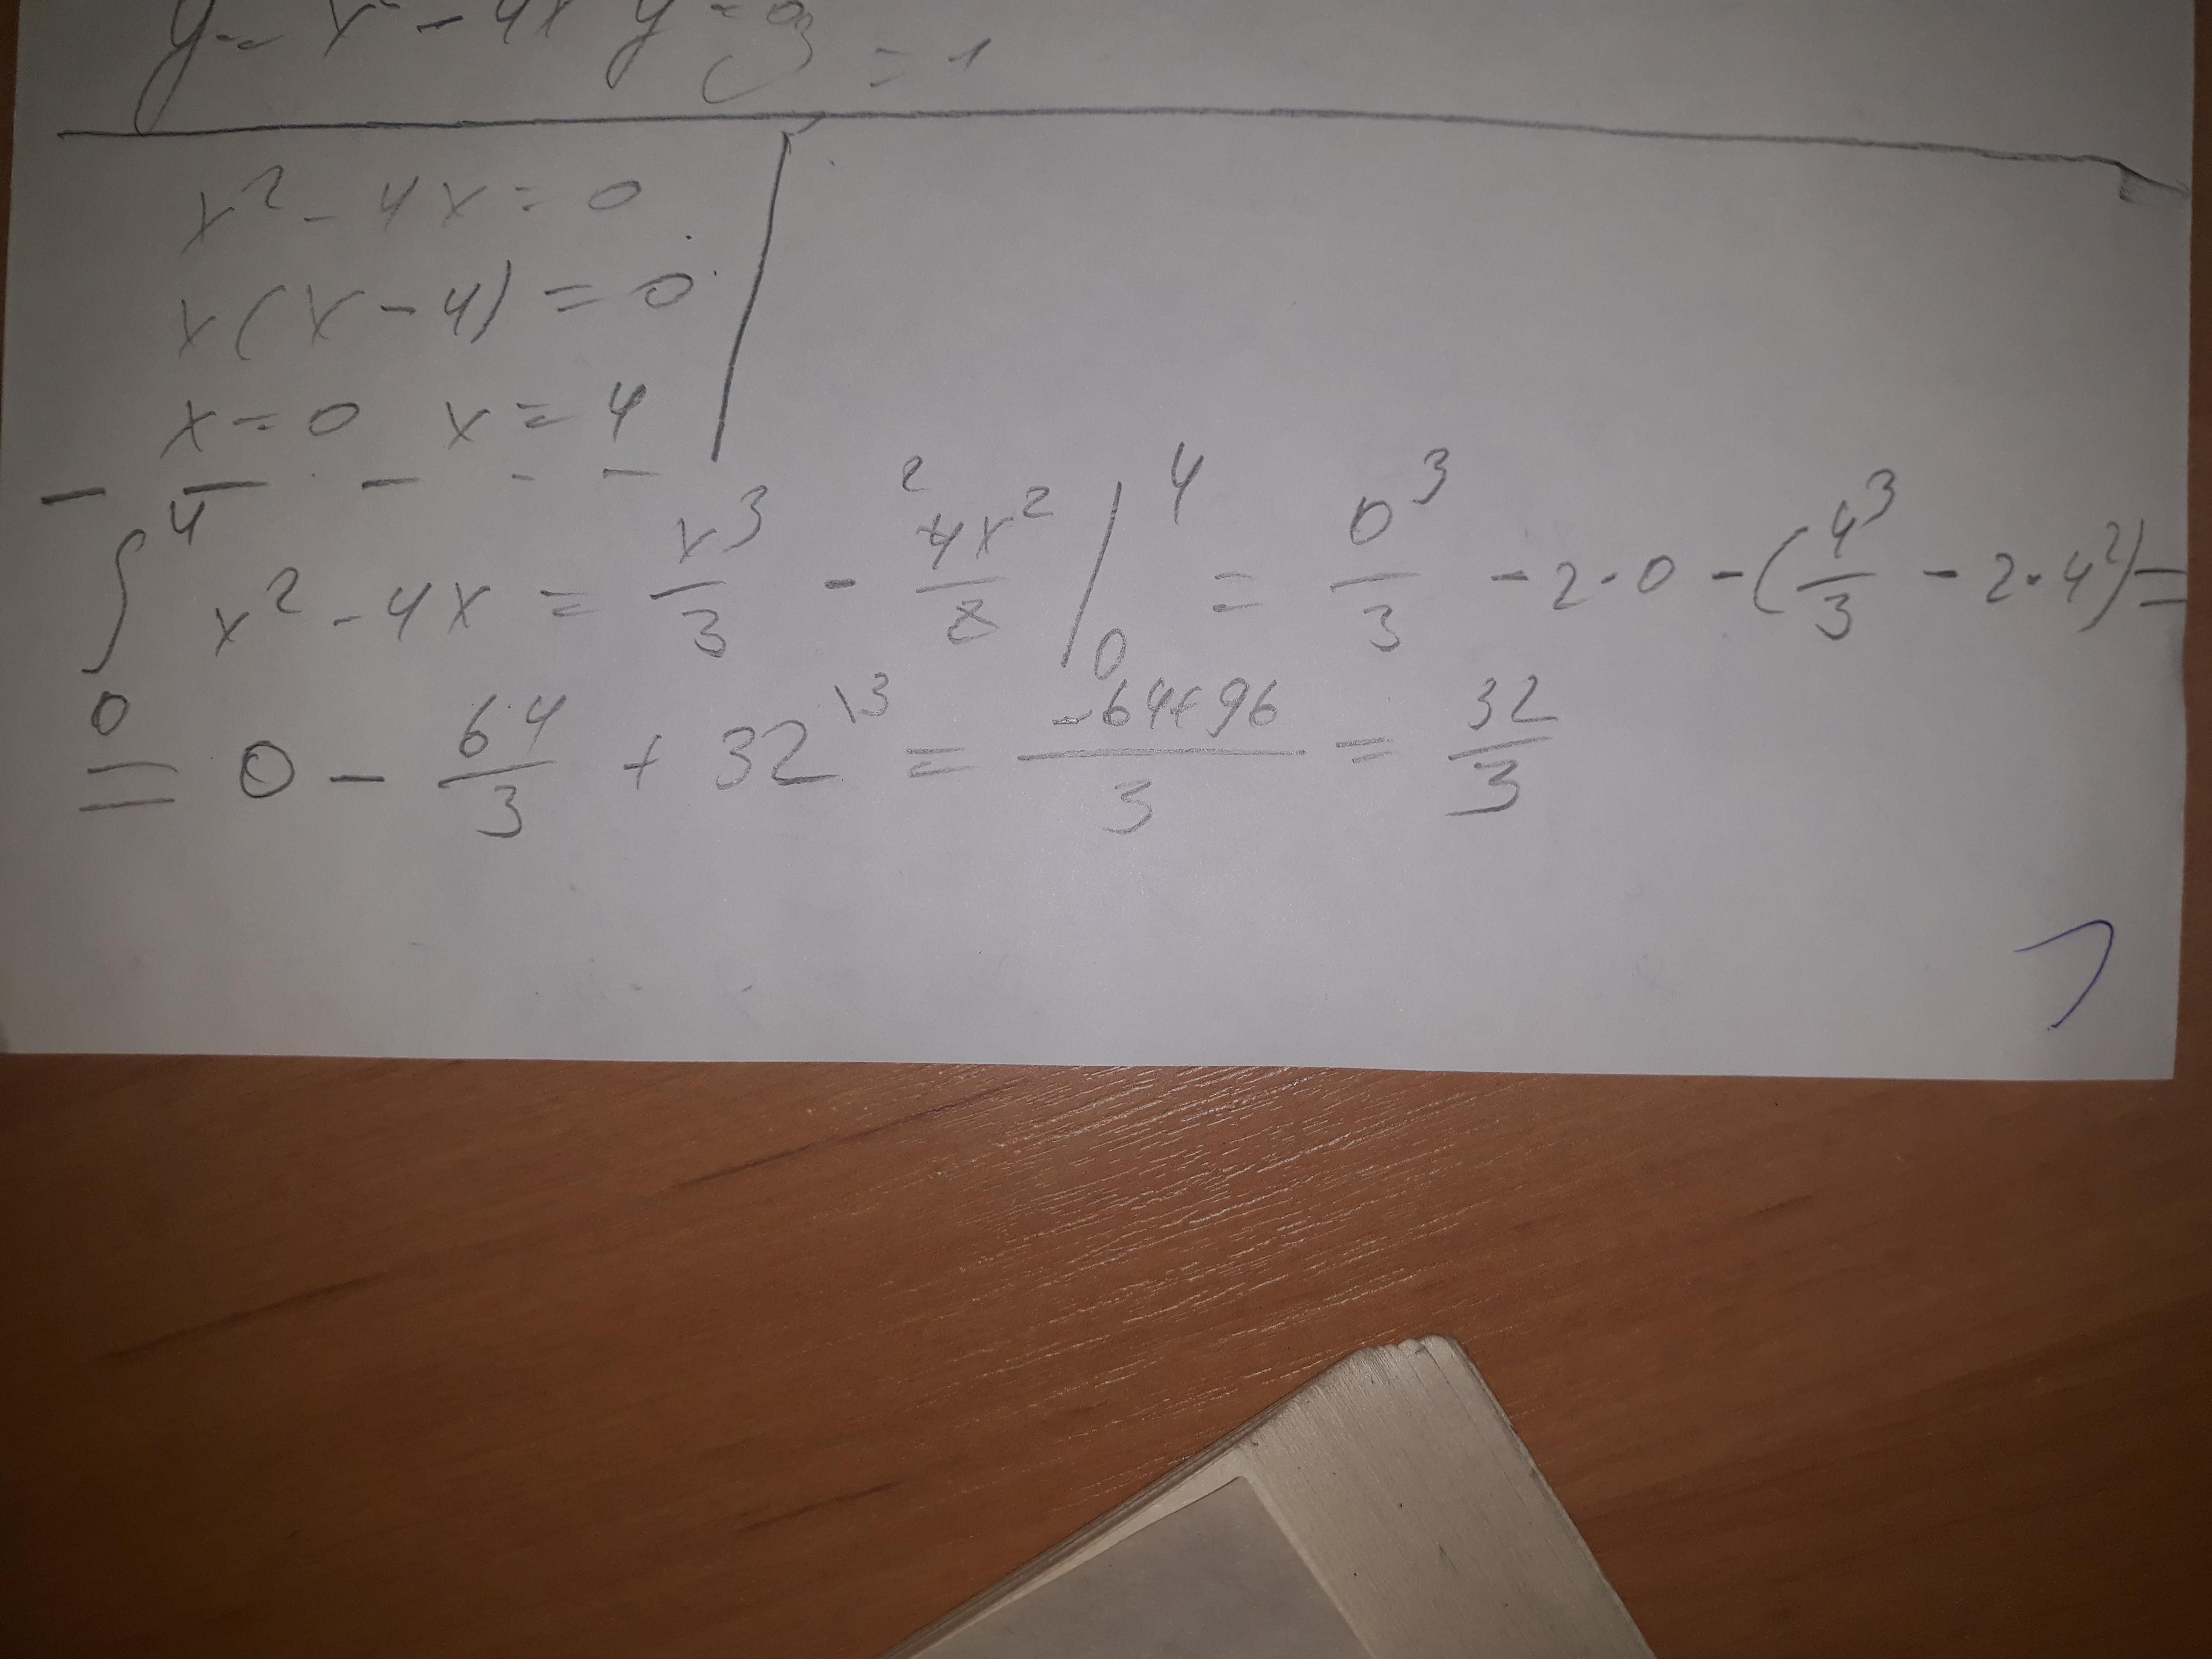 y = x² - 4x y = 0
= 1
x² - 4x = 0
x(x - 4) = 0
x = 0 x = 4
∫₀⁴ x² - 4x = x³/3 - 4x²/2 |₀⁴ = 0³/3 - 2·0 - (4³/3 - 2·4²) =
= 0 - 64/3 + 32\3 = (-64+96)/3 = 32/3